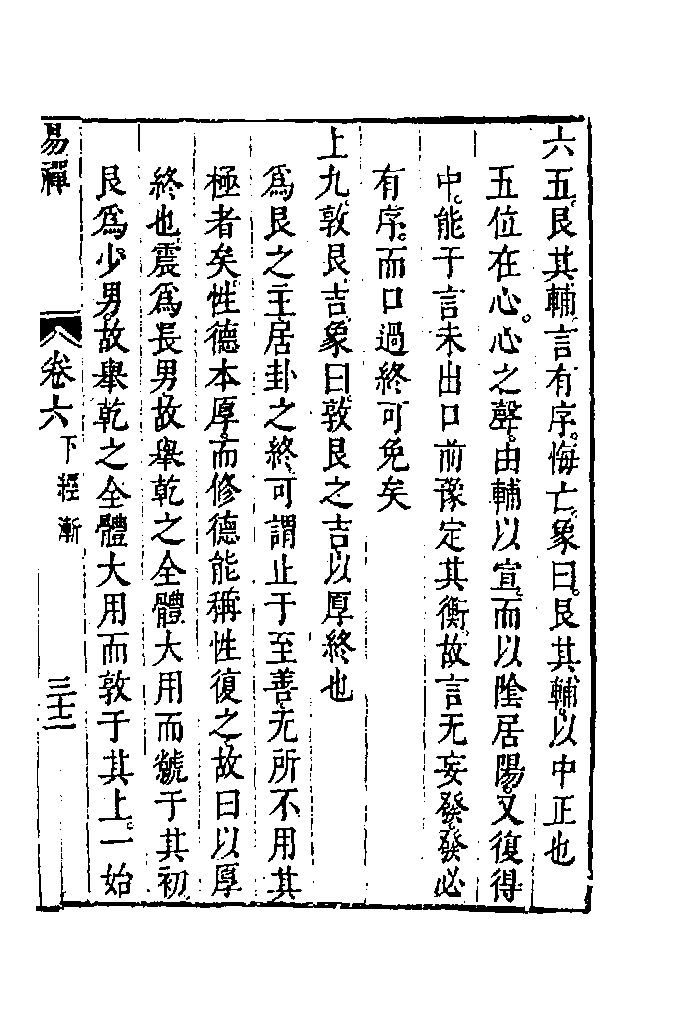 六五。艮其輔。言有序。悔亡。象曰。艮其輔。以中正也
五位在心。心之聲。由輔以宣。而以陰居陽。又復得
中。能于言未出口前。豫定其衡。故言无妄發。發必
有序。而口過終可免矣
上九。敦艮。吉。象曰。敦艮之吉。以厚終也
爲艮之主。居卦之終。可謂止于至善。无所不用其
極者矣。性德本厚。而修德能稱性復之。故曰以厚
終也。震爲長男。故舉乾之全體大用而虩于其初。
艮爲少男。故舉乾之全體大用而敦于其上。一始
易禪 卷六 下經 漸 三十二